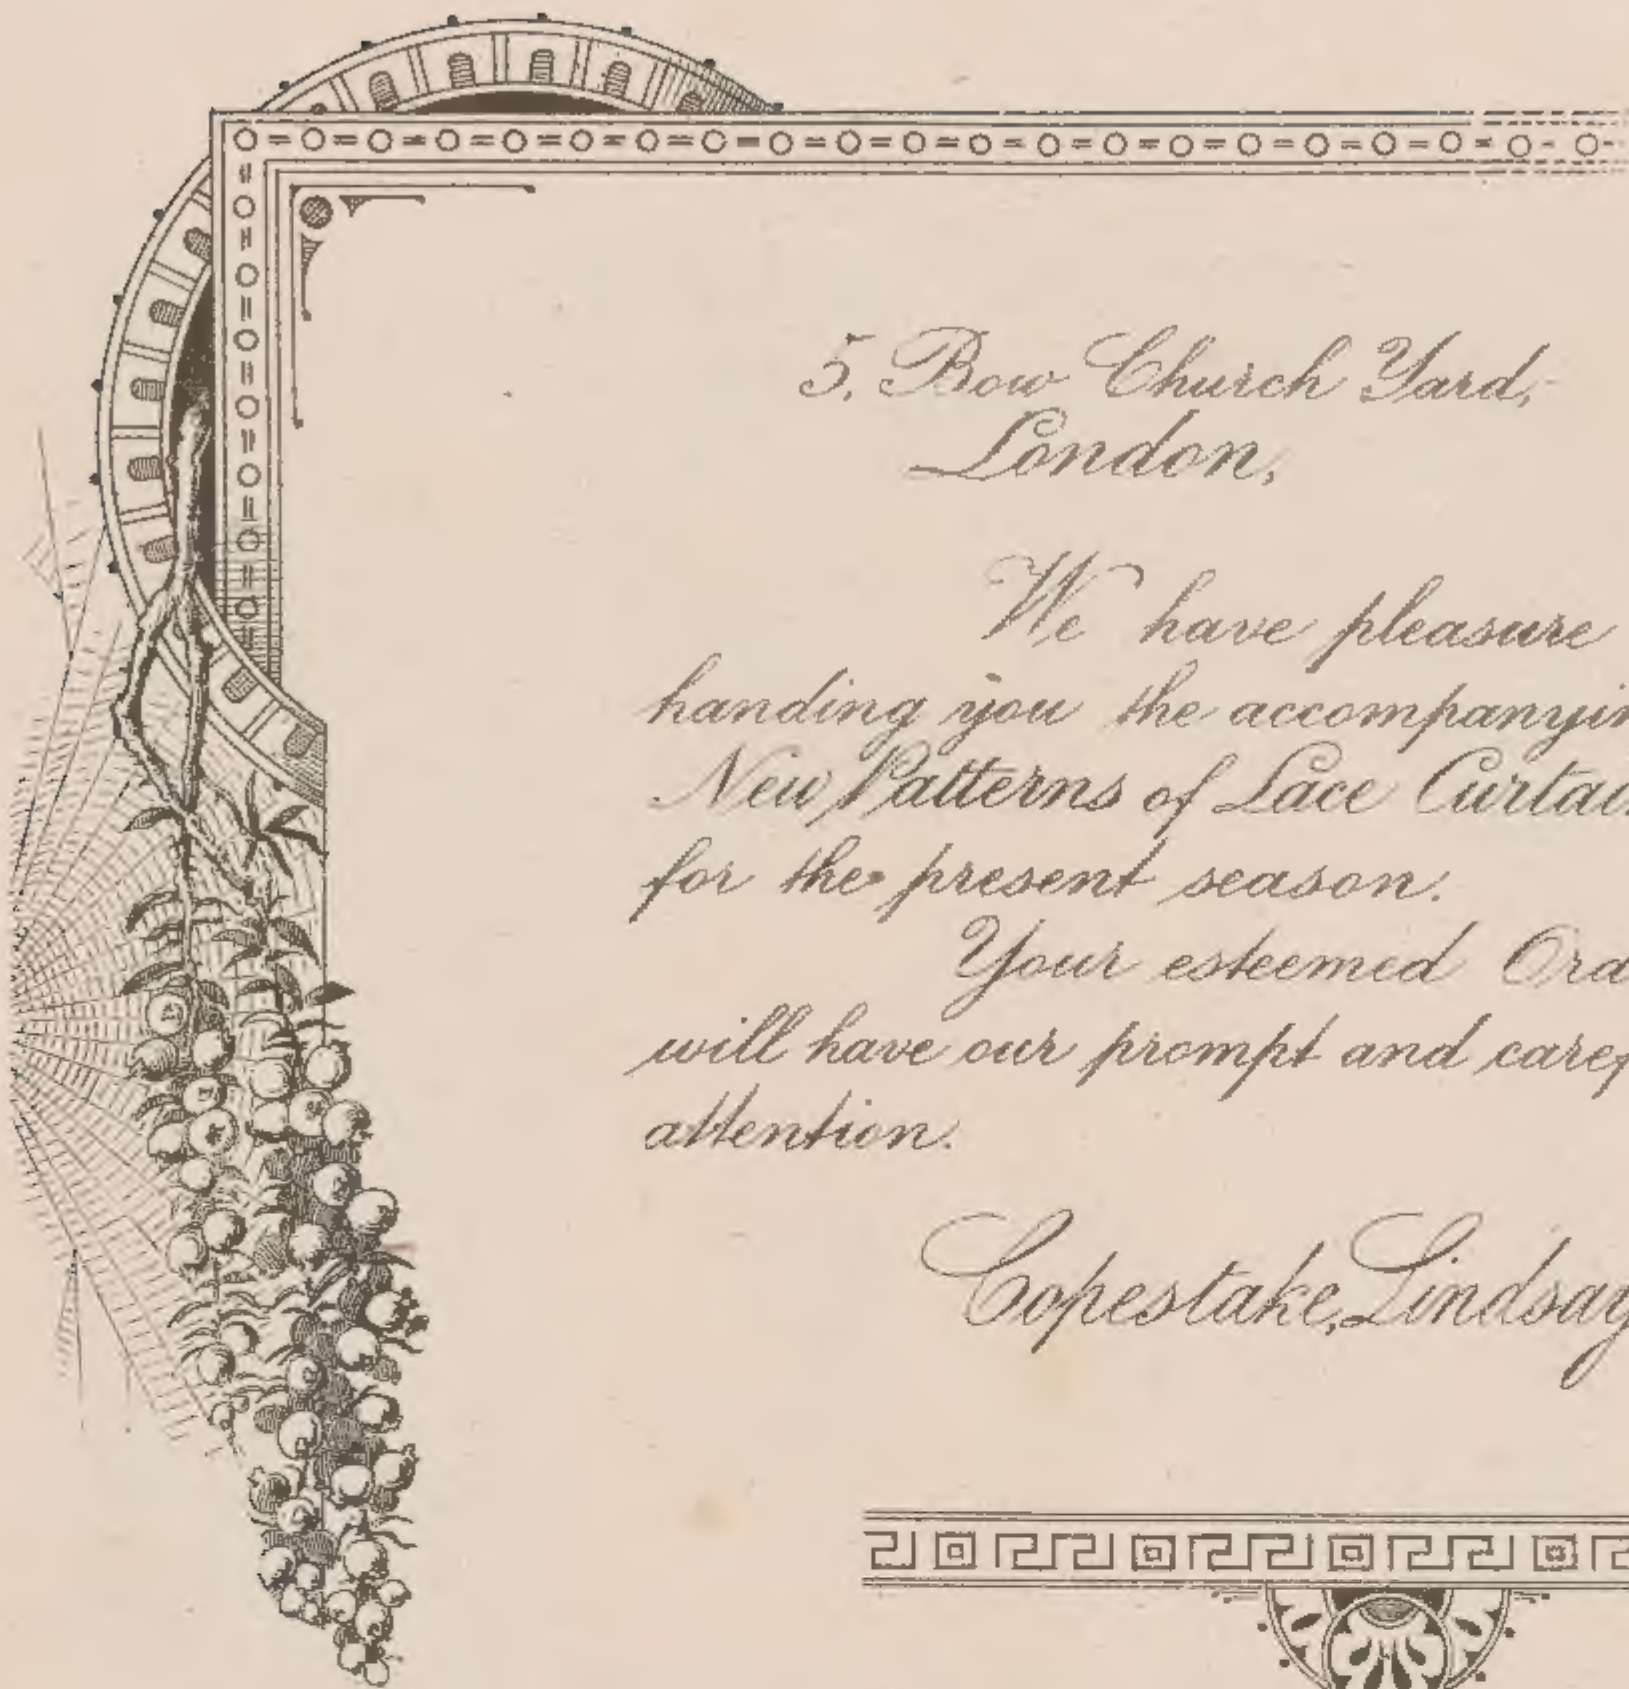 5, Bow Church Yard,
London,
We have pleasure
handing you the accompanyin
New Patterns of Lace Curtai
for the present season.
Your esteemed Ord
will have our prompt and caref
attention.
Copestake, Lindsay